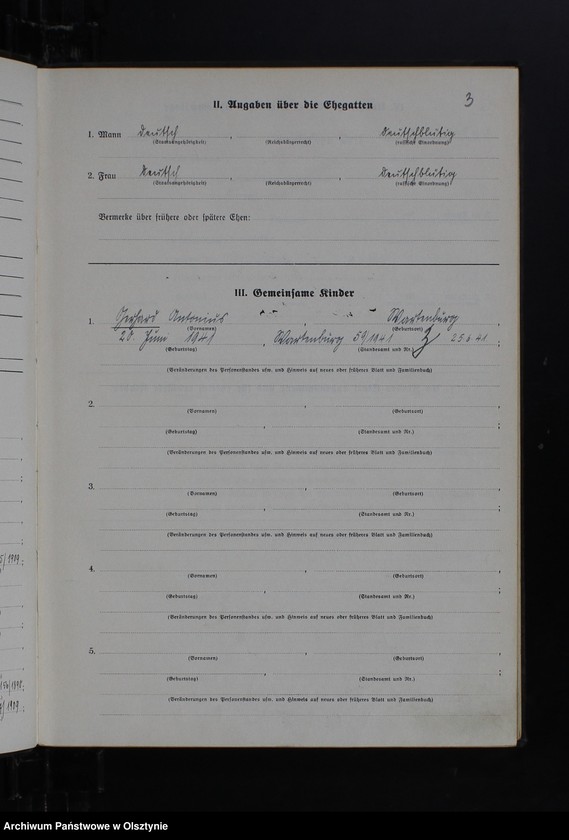 3
II. Angaben über die Ehegatten
1. Mann Deutsch , , Deutschblütig
(Staatsangehörigkeit) (Reichsbürgerrecht) (rassische Einordnung)
2. Frau Deutsch , , Deutschblütig
(Staatsangehörigkeit) (Reichsbürgerrecht) (rassische Einordnung)
Vermerke über frühere oder spätere Ehen:
III. Gemeinsame Kinder
1. Gerhard Antonius , Wartenburg ,
(Vornamen) (Geburtsort)
20. Juni 1941 , Wartenburg 59/1941 25.6.41
(Geburtstag) (Standesamt und Nr.)
(Veränderungen des Personenstandes usw. und Hinweis auf neues oder früheres Blatt und Familienbuch)
2. , ,
(Vornamen) (Geburtsort)
, ;
(Geburtstag) (Standesamt und Nr.)
(Veränderungen des Personenstandes usw. und Hinweis auf neues oder früheres Blatt und Familienbuch)
3. , ,
(Vornamen) (Geburtsort)
, ;
(Geburtstag) (Standesamt und Nr.)
(Veränderungen des Personenstandes usw. und Hinweis auf neues oder früheres Blatt und Familienbuch)
4. , ,
(Vornamen) (Geburtsort)
, ;
(Geburtstag) (Standesamt und Nr.)
(Veränderungen des Personenstandes usw. und Hinweis auf neues oder früheres Blatt und Familienbuch)
5. , ,
(Vornamen) (Geburtsort)
, ;
(Geburtstag) (Standesamt und Nr.)
(Veränderungen des Personenstandes usw. und Hinweis auf neues oder früheres Blatt und Familienbuch)
Archiwum Państwowe w Olsztynie